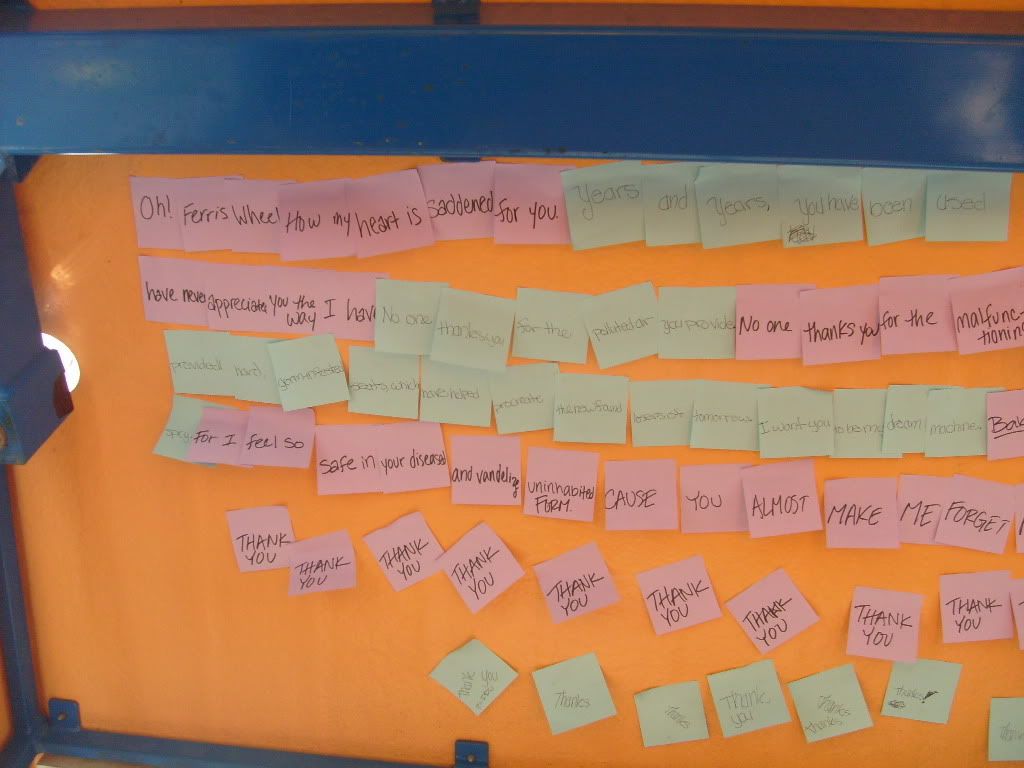 Oh! Ferris Wheel How my heart is saddened for you. Years and Years, you have been used
have never appreciate you the way I have No one thanks you for the polluted air you provide No one thanks you for the malfunc-tioning
provided hard, germ-infested seats, which have helped procreate the newfound losers of tomorrow. I want you to be my dream machine.
For I feel so safe in your diseased and vandelize uninhabited FORM. CAUSE YOU ALMOST MAKE ME FORGET
THANK YOU THANK YOU THANK YOU THANK YOU THANK YOU THANK YOU THANK YOU THANK YOU THANK YOU
Thanks Thanks Thank you Thanks thanks Thanks!